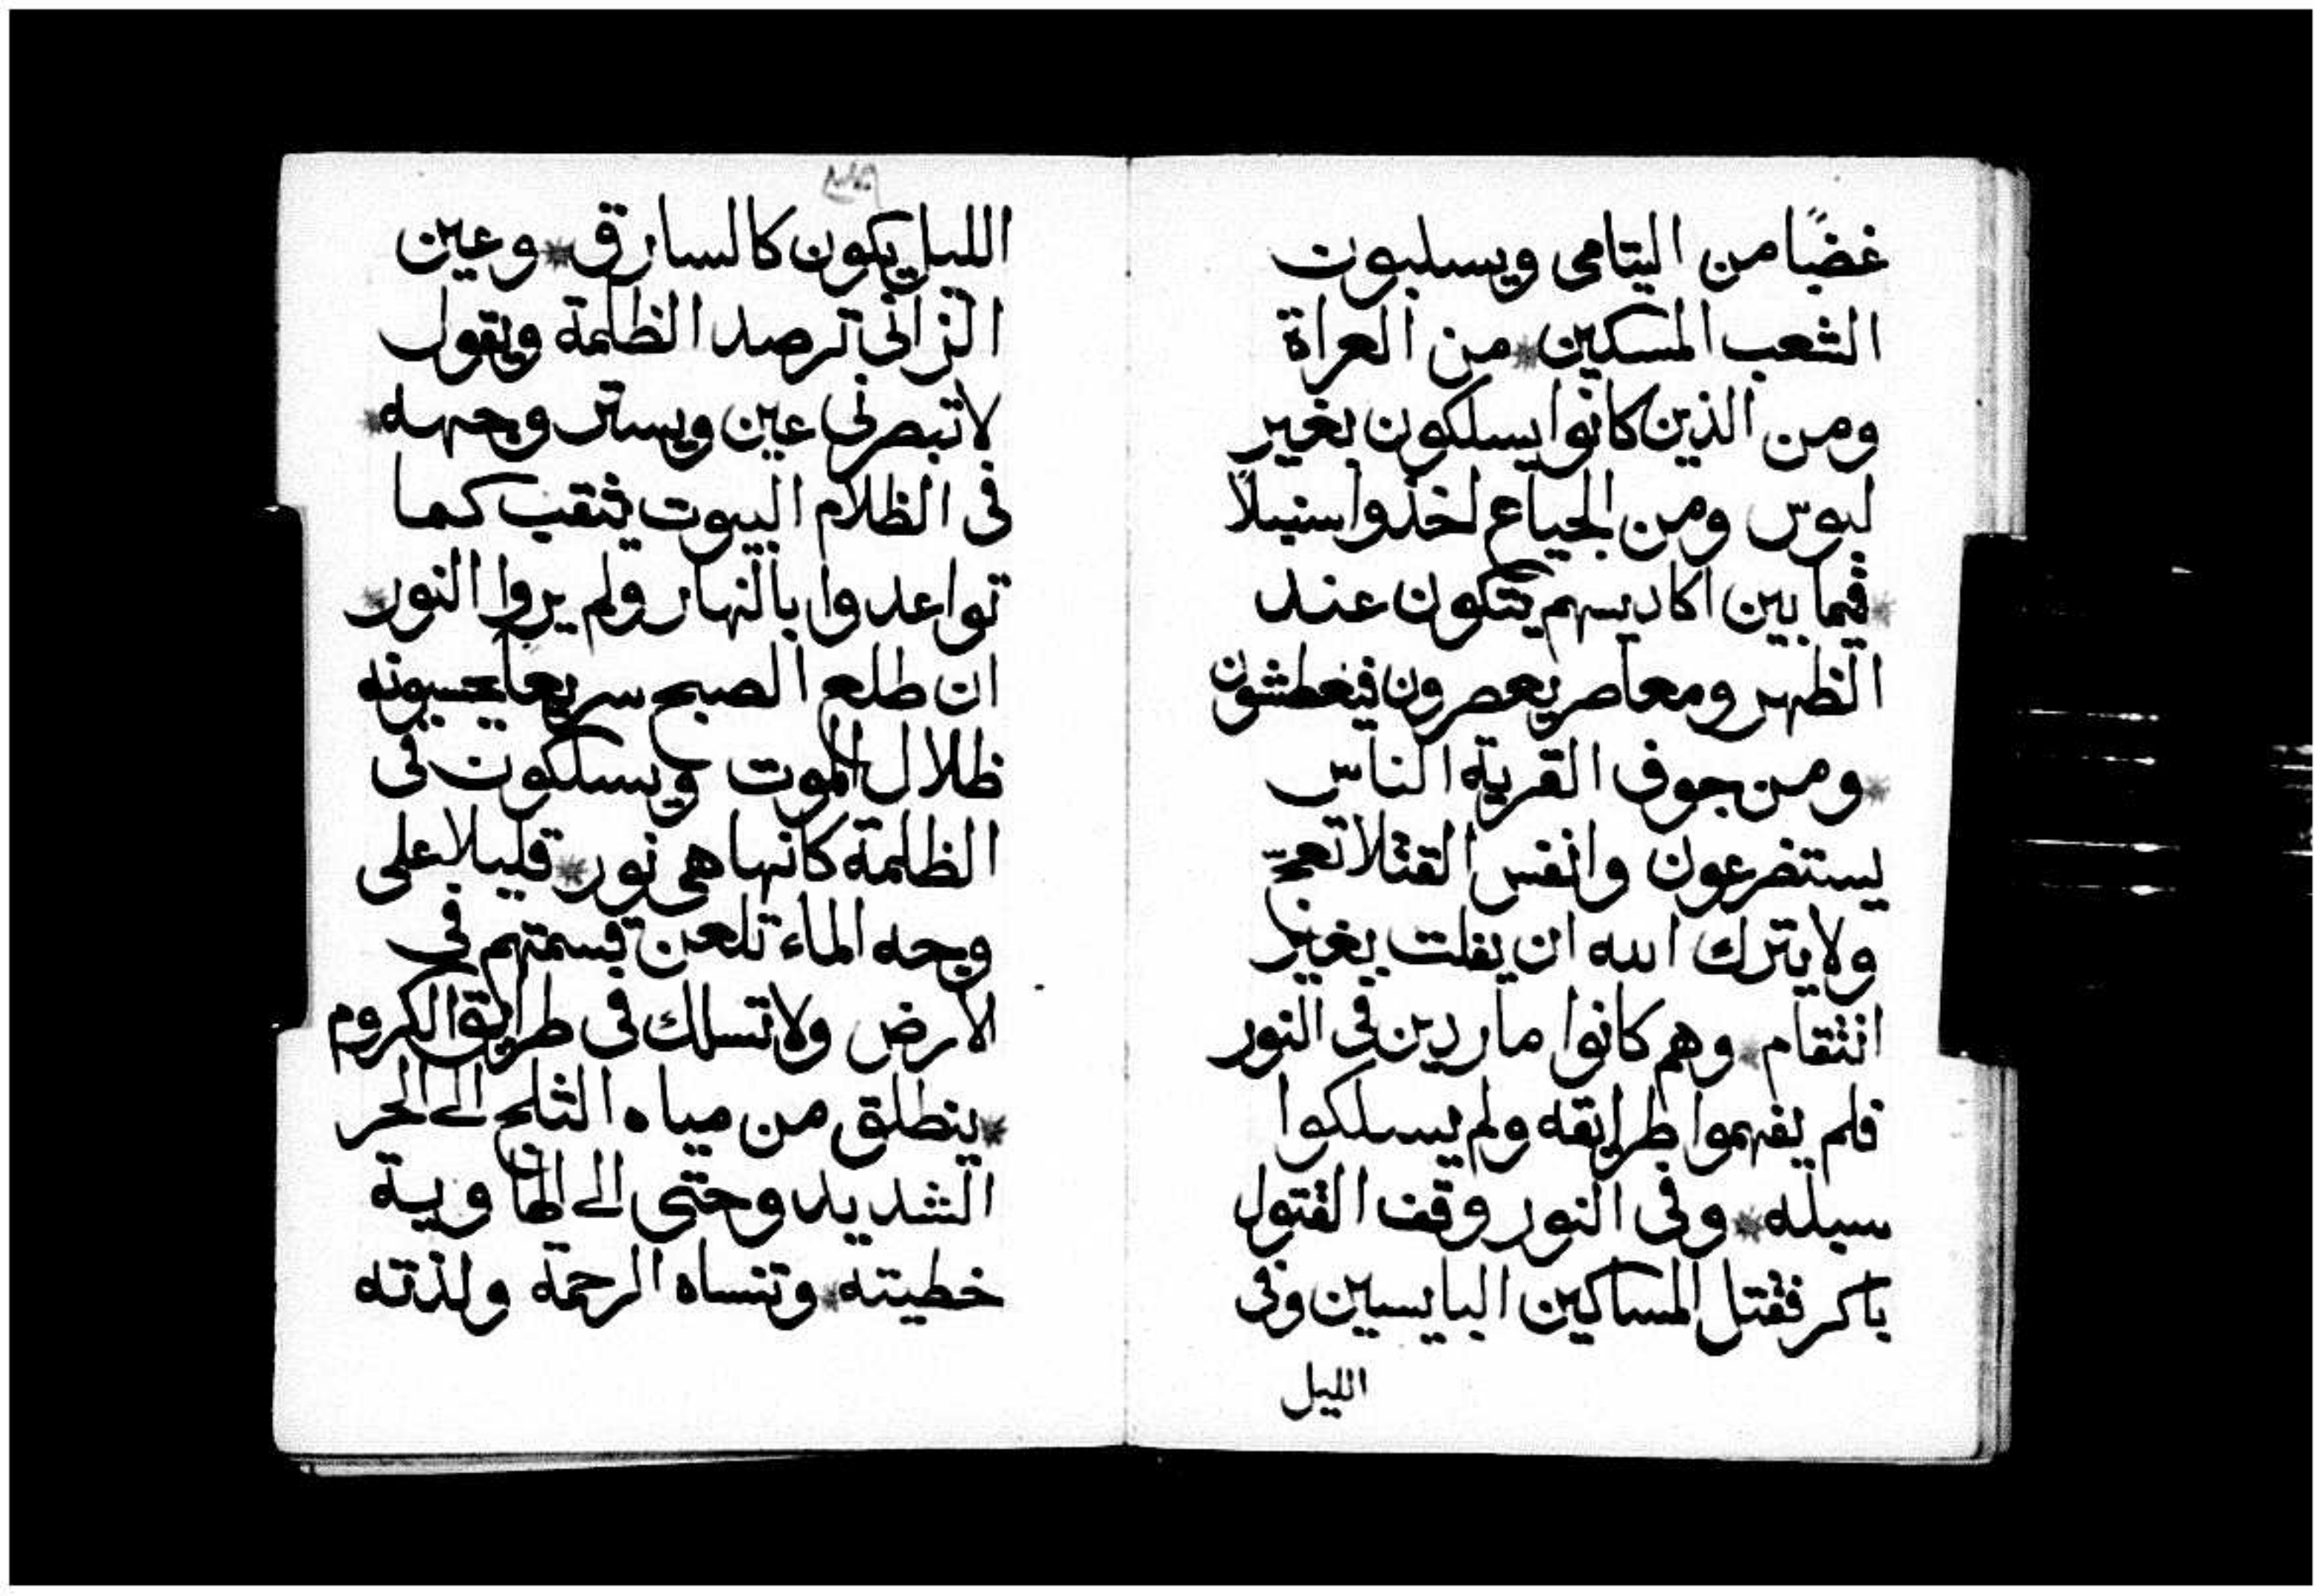 غضبًا من اليتامى ويسلبون
الشعب المسكين * من العراة
ومن الذين كانوا يسلكون بغير
لبوس ومن الجياع لخذوا سنبلاً
* فيما بين اكاديسهم يتكون عند
الظهر ومعاصر يعصرون فيغطشون
* ومن جوف القرية الناس
يستضرعون وانفس القتلا تعجّ
ولا يترك الله ان يفلت بغير
انتقام * وهم كانوا ماردين فى النور
فلم يفهموا طرايقه ولم يسلكوا
سبله * وفى النور وقف القتول
باكر فقتل المساكين البايسين وفى
الليل
الليل يكون كالسارق * وعين
الزانى ترصد الظلمة ويقول
لا تبصرنى عين ويستر وجهه *
فى الظلام البيوت يثقب كما
تواعدوا بالنهار ولم يروا النور *
ان طلع الصبح سريعا يحسبونه
ظلال الموت ويسلكون فى
الظلمة كانها هى نور * قليلا على
وجه الماء تلعن قسمتهم فى
الارض ولا تسلك فى طرايق الكروم
* ينطلق من مياه الثلج الى الحر
الشديد وحتى الى الهاوية
خطيته * وتنساه الرحمة ولذته